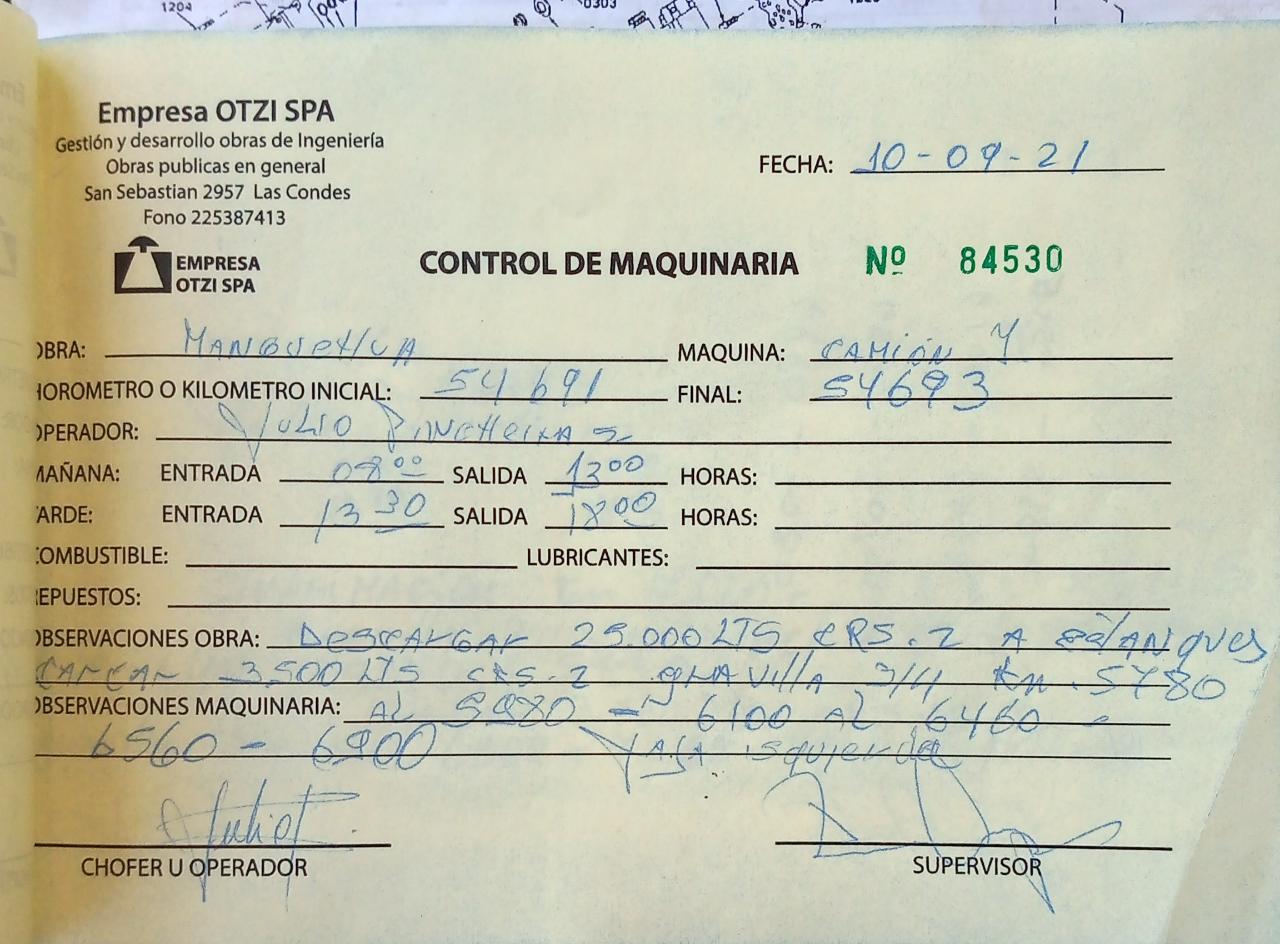 1204 0303
Empresa OTZI SPA
Gestión y desarrollo obras de Ingeniería
Obras publicas en general
San Sebastian 2957 Las Condes
Fono 225387413
FECHA: 10-09-21
EMPRESA
OTZI SPA
CONTROL DE MAQUINARIA Nº 84530
OBRA: MAQUINA: CAMIÓN
HOROMETRO O KILOMETRO INICIAL: 54691 FINAL: 54693
OPERADOR: JULIO
MAÑANA: ENTRADA 08⁰⁰ SALIDA 13⁰⁰ HORAS:
TARDE: ENTRADA 13³⁰ SALIDA 18⁰⁰ HORAS:
COMBUSTIBLE: LUBRICANTES:
REPUESTOS:
OBSERVACIONES OBRA: DESCARGAR 25.000 LTS CRS.2 A ESTANQUES
3.500 LTS CRS.2 GRAVILLA 3/4 Km. 5780
OBSERVACIONES MAQUINARIA: AL 5980 - 6100 AL 6460 -
6560 - 6900 FAJA isquierda
CHOFER U OPERADOR SUPERVISOR